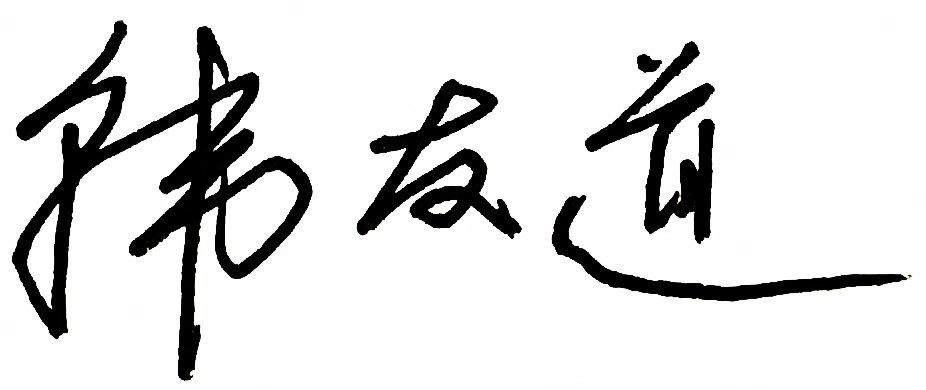 韩友道